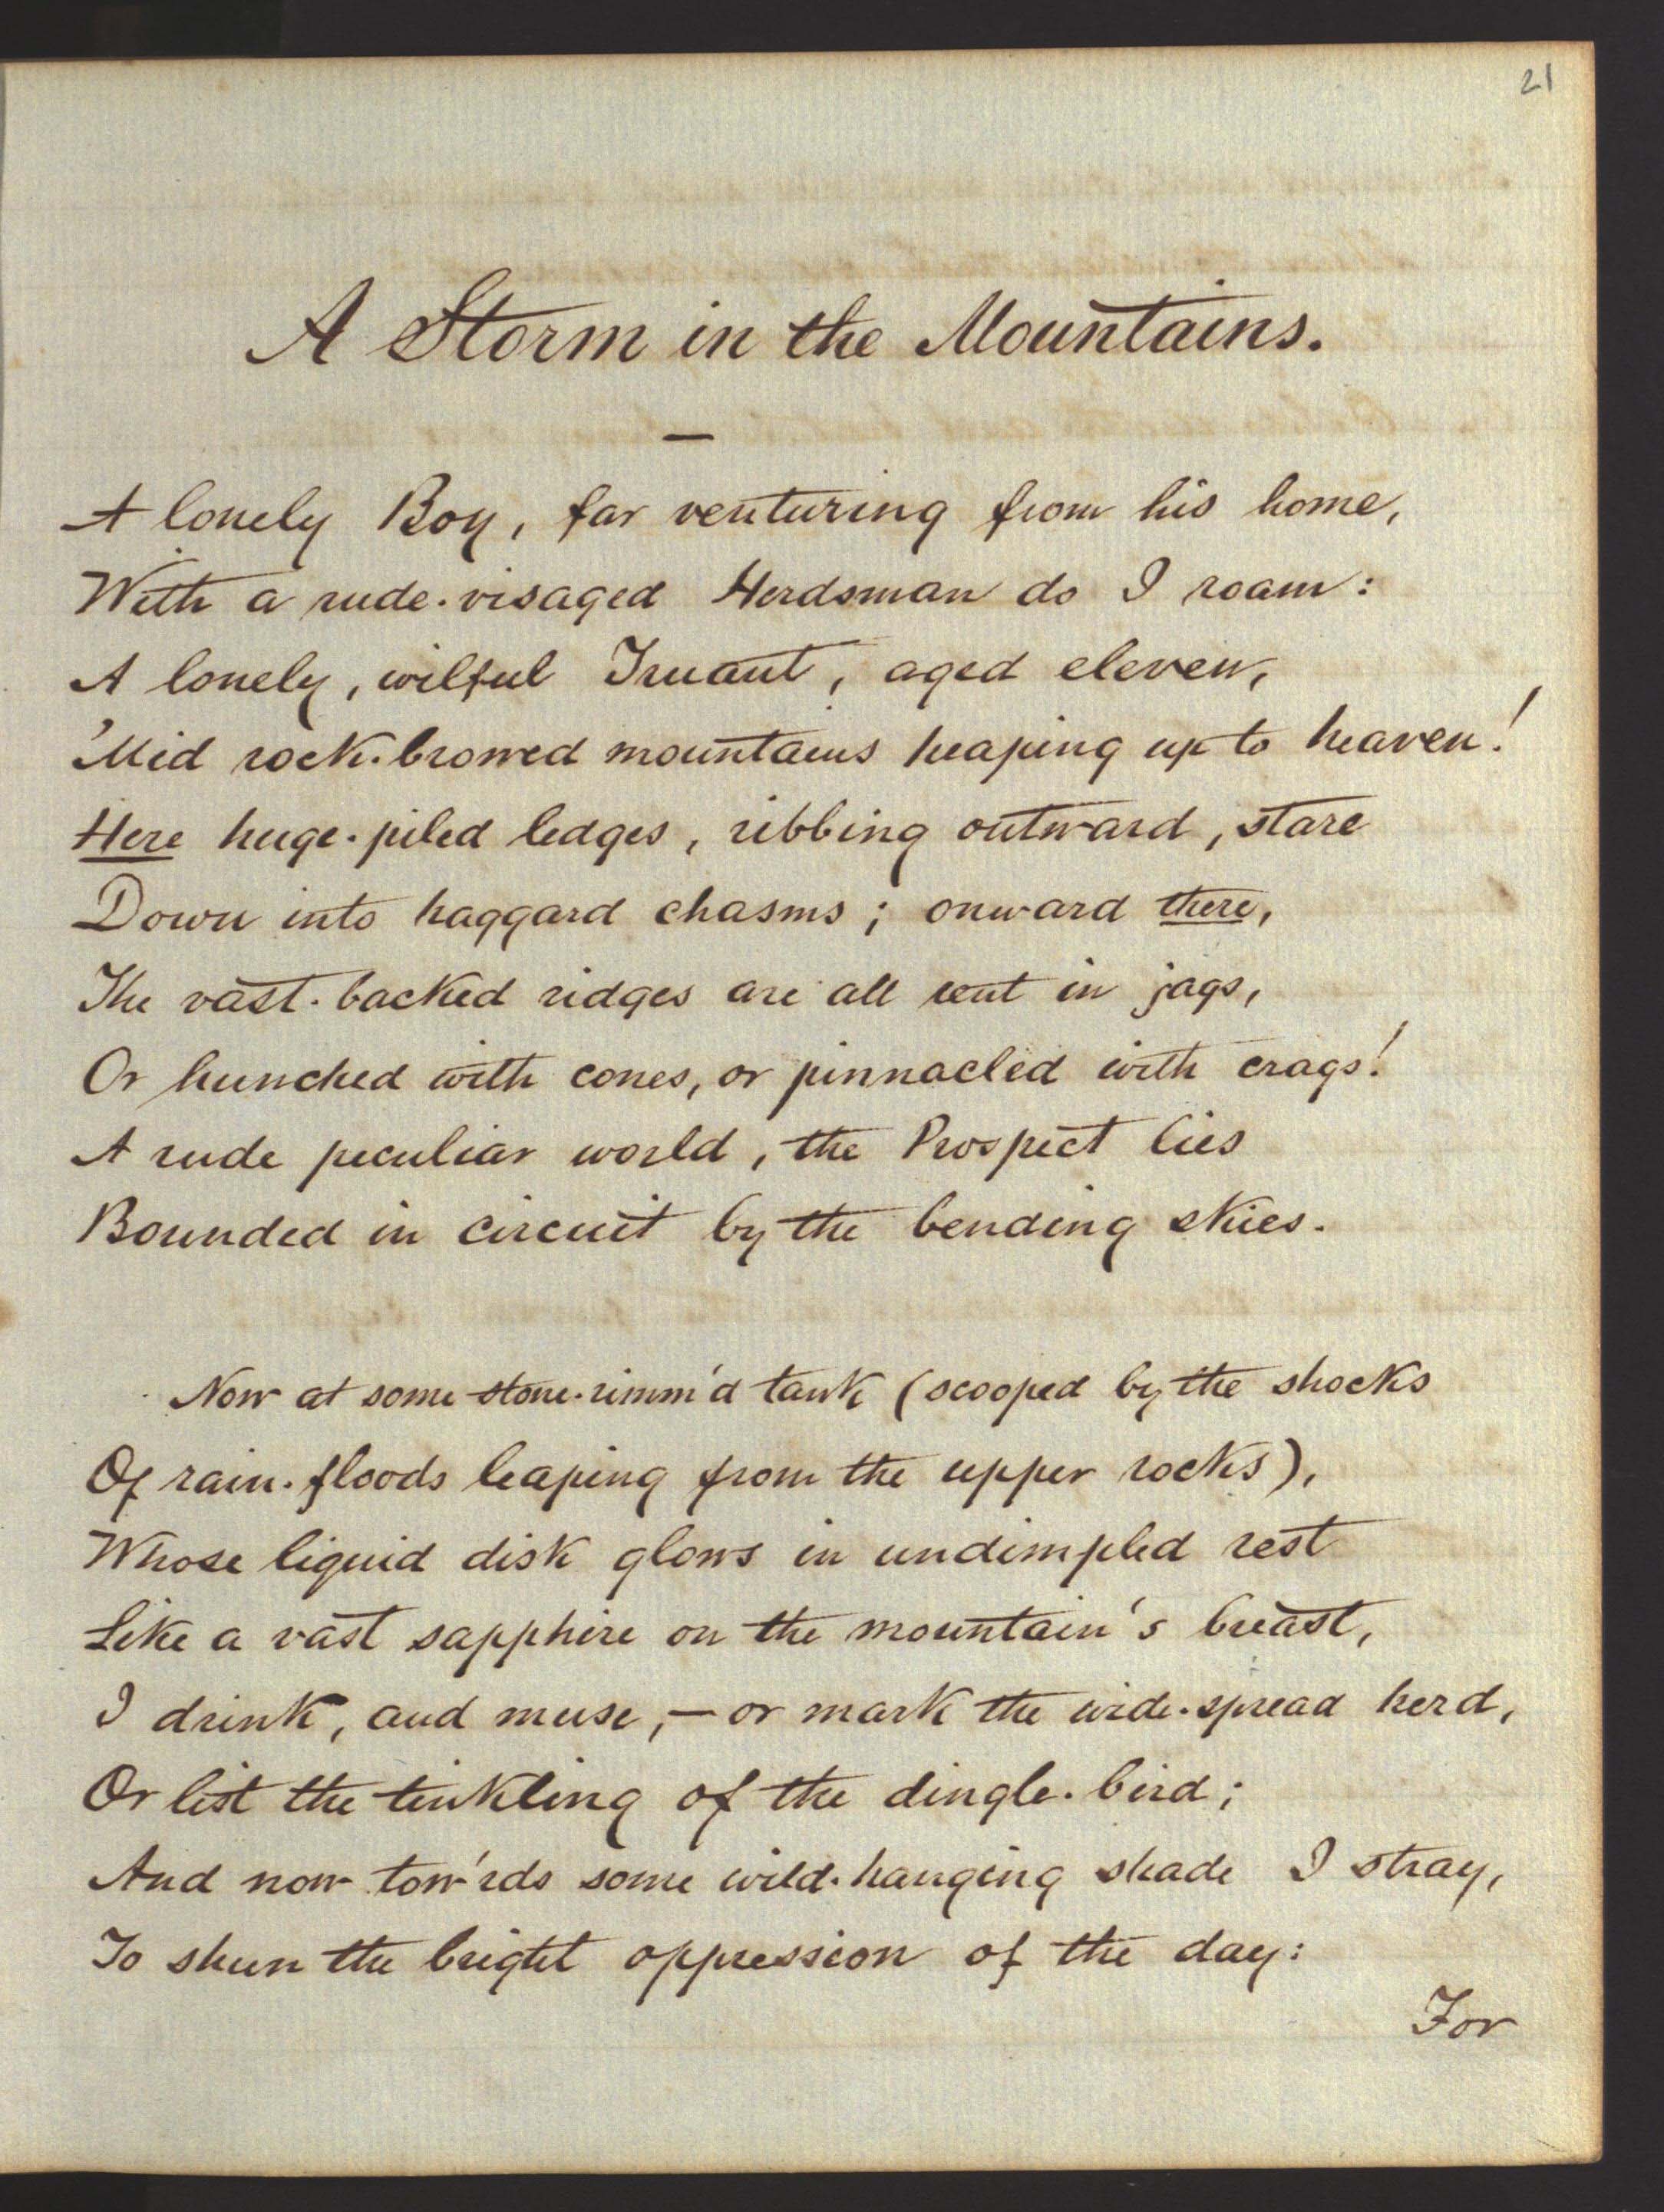 21
A Storm in the Mountains.
—
A lonely Boy, far venturing from his home,
With a rude-visaged Herdsman do I roam:
A lonely, wilful Truant, aged eleven,
'Mid rock-browed mountains heaping up to heaven!
Here huge-piled ledges, ribbing outward, stare
Down into haggard chasms; onward there,
The vast-backed ridges are all rent in jags,
Or hunched with cones, or pinnacled with crags!
A rude peculiar world, the Prospect lies
Bounded in circuit by the bending skies.
Now at some stone-rimm'd tank (scooped by the shocks
Of rain-floods leaping from the upper rocks),
Whose liquid disk glows in undimpled rest
Like a vast sapphire on the mountain's breast,
I drink, and muse,—or mark the wide-spread herd,
Or list the tinkling of the dingle-bird;
And now tow'rds some wild-hanging shade I stray,
To shun the bright oppression of the day:
For